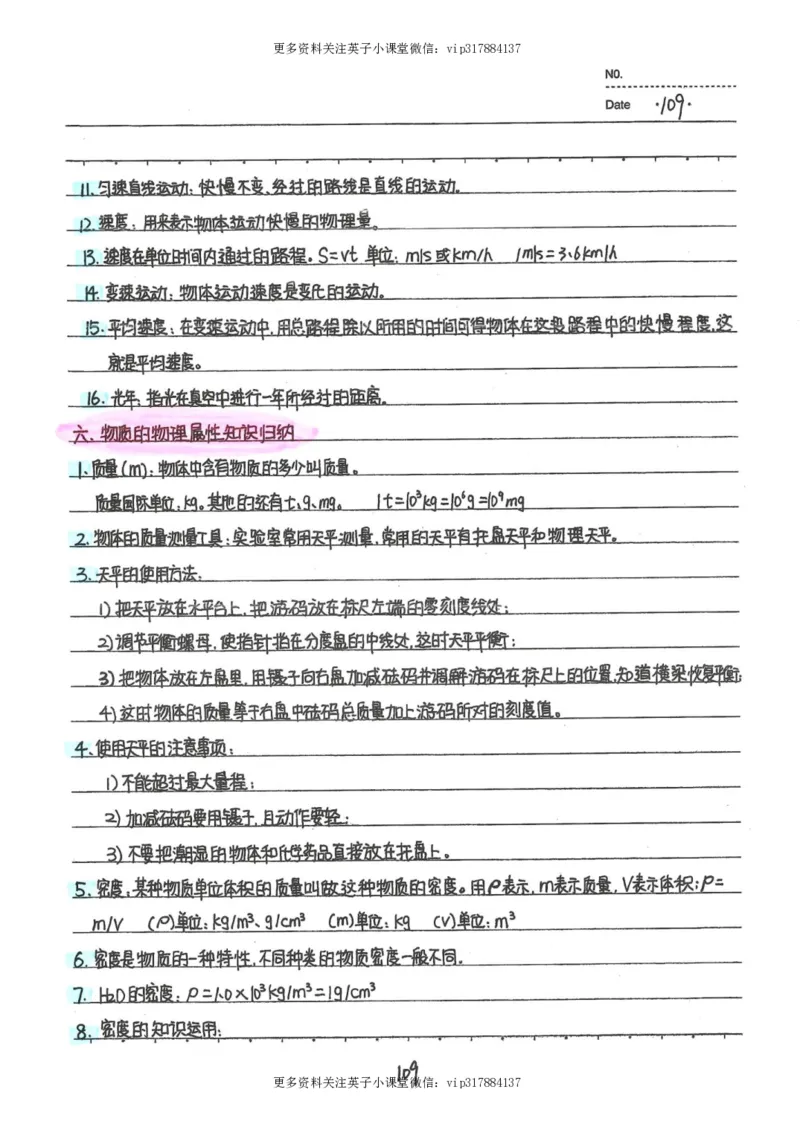 更多资料关注英子小课堂微信：vip317884137
NO.
Date ·109·
11.匀速直线运动：快慢不变、经过的路线是直线的运动。
12.速度：用来表示物体运动快慢的物理量。
13.速度在单位时间内通过的路程。S=vt 单位：m/s或km/h 1m/s=3.6km/h
14.变速运动：物体运动速度是变化的运动。
15.平均速度：在变速运动中,用总路程除以所用的时间可得物体在这段路程中的快慢程度,这
就是平均速度。
16.光年：指光在真空中进行一年所经过的距离。
六、物质的物理属性知识归纳
1.质量(m)：物体中含有物质的多少叫质量。
质量国际单位：kg。其他的还有t、g、mg。 1t=10³kg=10⁶g=10⁹mg
2.物体的质量测量工具：实验室常用天平测量,常用的天平有托盘天平和物理天平。
3.天平的使用方法：
1)把天平放在水平台上,把游码放在标尺左端的零刻度线处；
2)调节平衡螺母,使指针指在分度盘的中线处,这时天平平衡；
3)把物体放在左盘里,用镊子向右盘加减砝码并调解游码在标尺上的位置,知道横梁恢复平衡；
4)这时物体的质量等于右盘中砝码总质量加上游码所对的刻度值。
4、使用天平的注意事项：
1)不能超过最大量程；
2)加减砝码要用镊子,且动作要轻；
3)不要把潮湿的物体和化学药品直接放在托盘上。
5.密度：某种物质单位体积的质量叫做这种物质的密度。用ρ表示,m表示质量,V表示体积；ρ=
m/v (ρ)单位：kg/m³、g/cm³ (m)单位：kg (v)单位：m³
6.密度是物质的一种特性,不同种类的物质密度一般不同.
7. H₂O的密度：ρ=1.0×10³kg/m³=1g/cm³
8.密度的知识运用：
109
更多资料关注英子小课堂微信：vip317884137